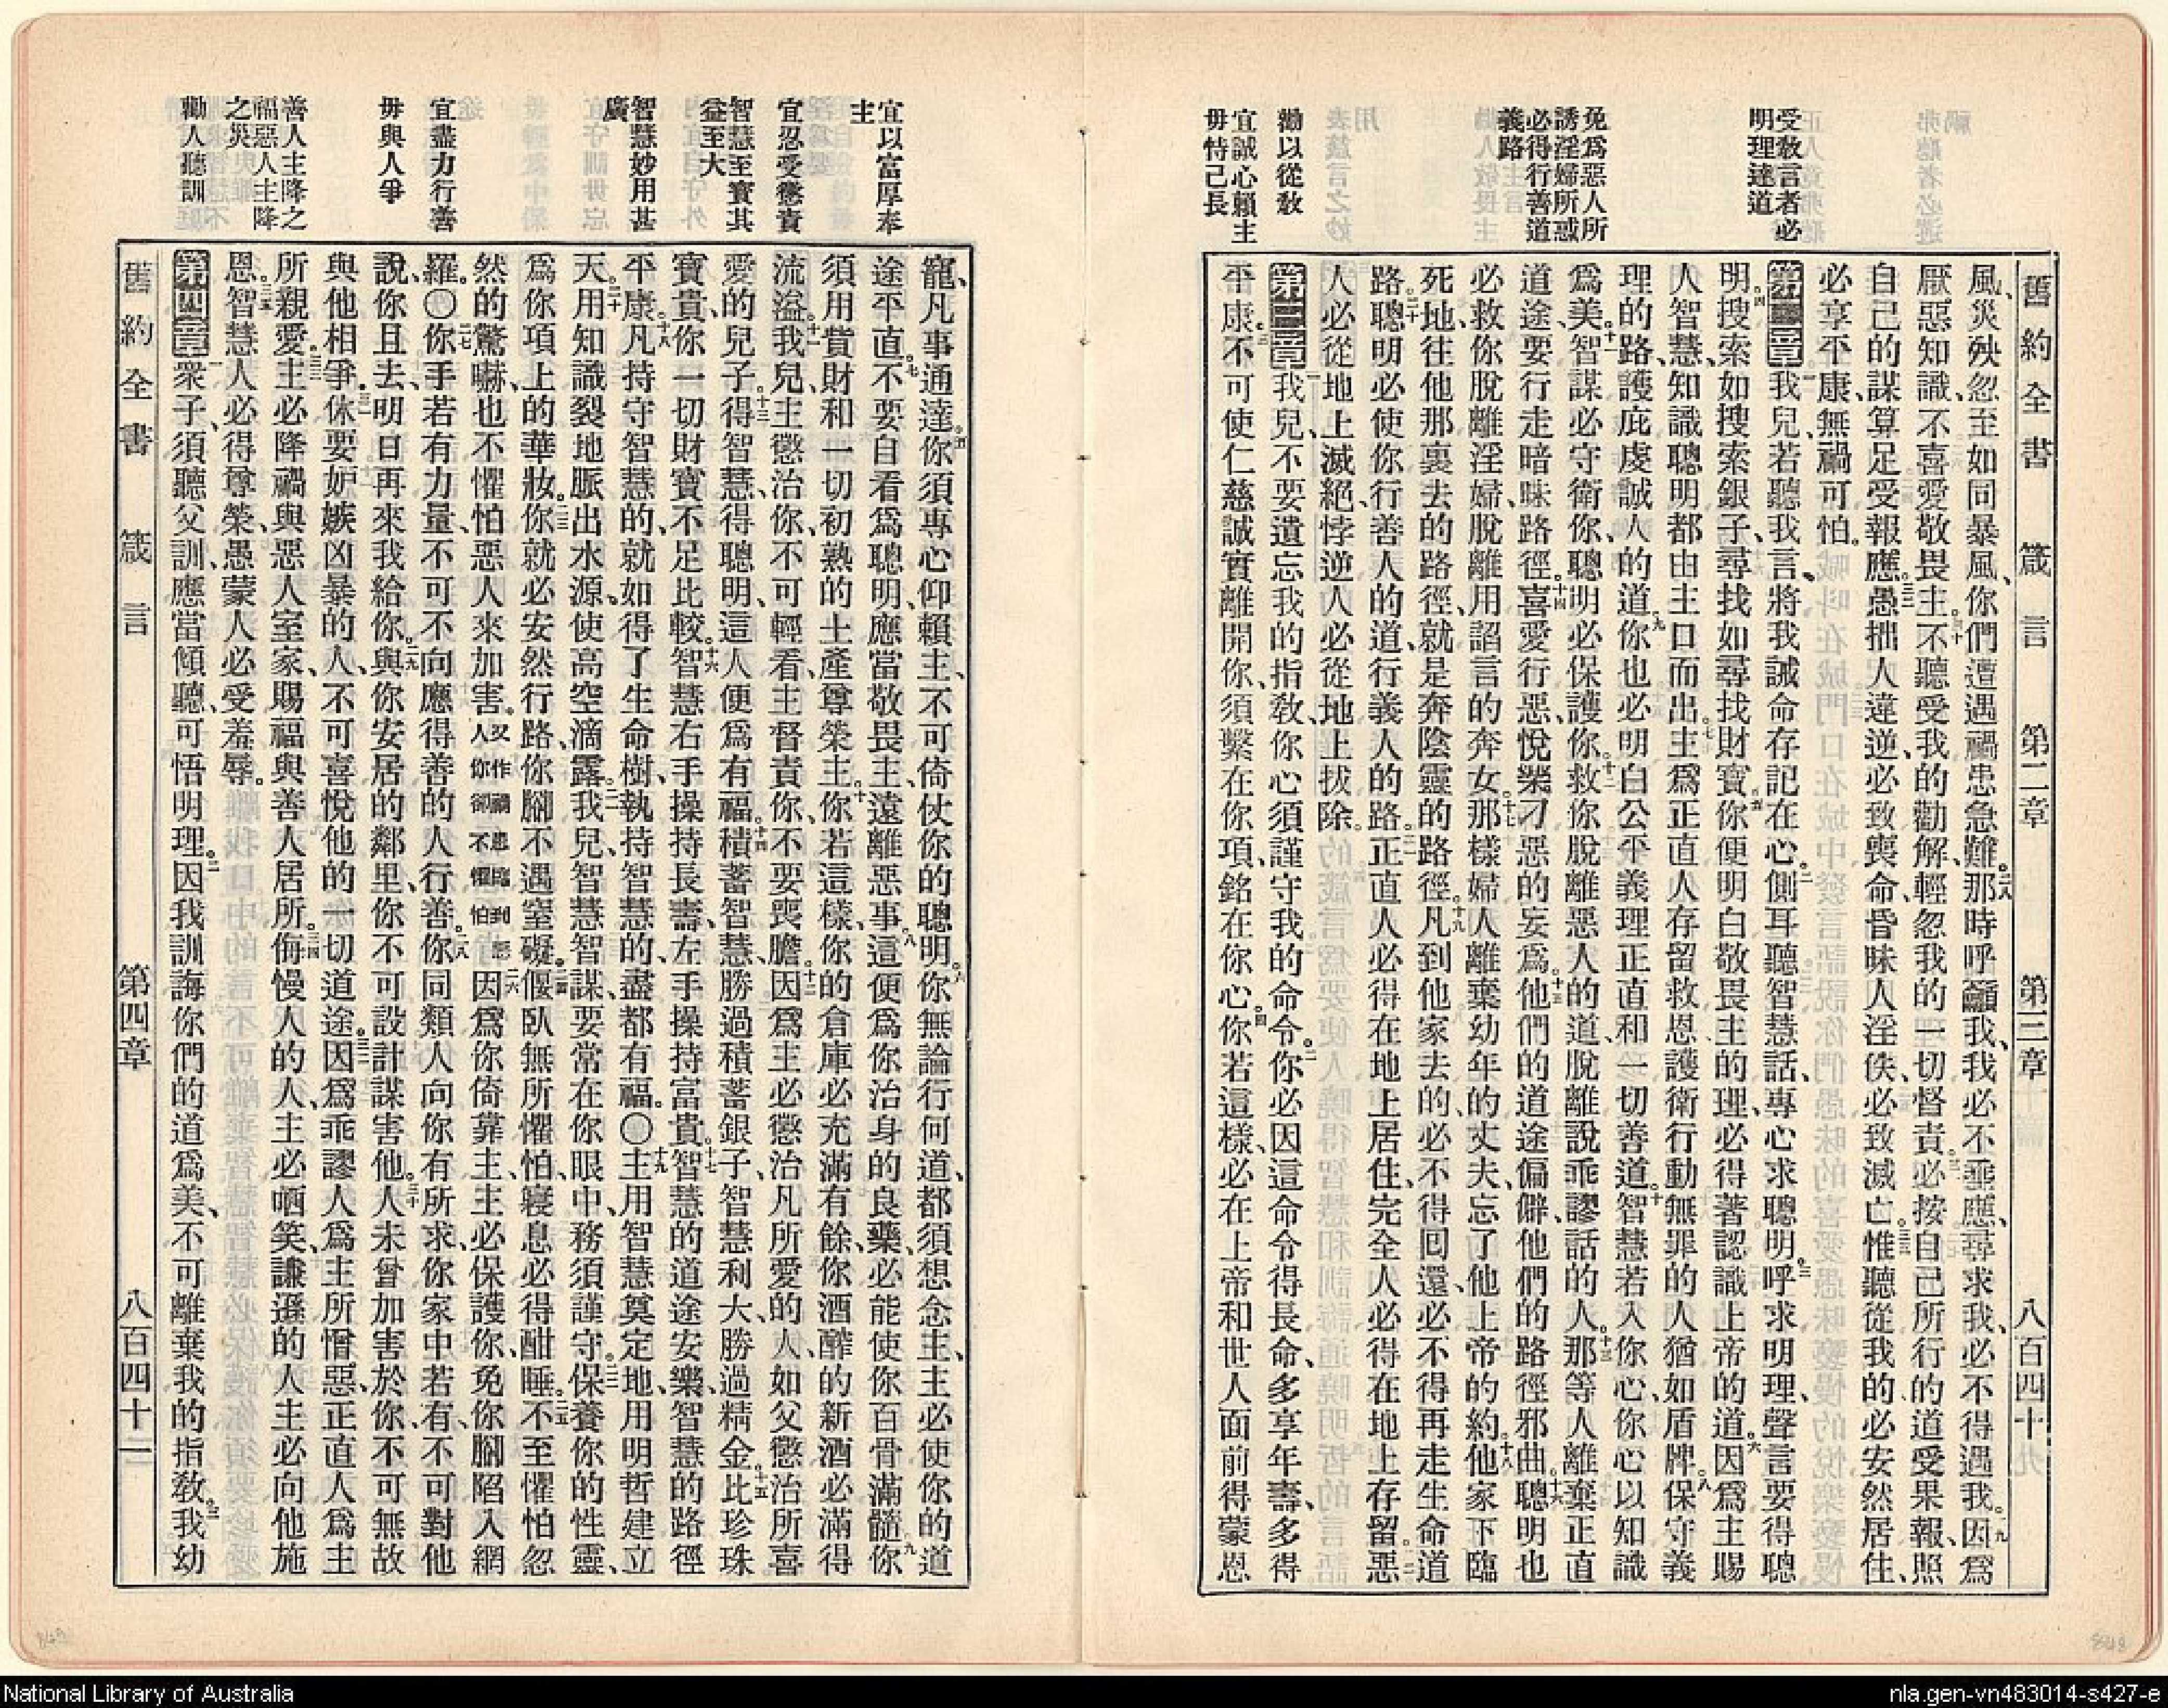 舊約全書 箴言 第二章 第三章 八百四十
受教言者必
明理達道
免爲惡人所
誘淫婦所惑
必得行善道
義路
勸以從教
宜誠心賴主
毋恃己長
風、災殃忽至如同暴風、你們遭遇禍患急難。二八那時呼籲我、我必不垂應、尋求我、必不得遇我。二九因爲
厭惡知識、不喜愛敬畏主。三十不聽受我的勸解、輕忽我的一切督責。三一必按自己所行的道受果報、照
自己的謀算足受報應。三二愚拙人違逆、必致喪命、昏昧人淫佚、必致滅亡。三三惟聽從我的、必安然居住、
必享平康、無禍可怕。
第二章一我兒、若聽我言、將我誡命存記在心。二側耳聽智慧話、專心求聰明。三呼求明理、聲言要得聰
明。四搜索如搜索銀子、尋找如尋找財寶。五你便明白敬畏主的理、必得著認識上帝的道。六因爲主賜
人智慧、知識聰明都由主口而出。七主爲正直人存留救恩、護衛行動無罪的人猶如盾牌。八保守義
理的路、護庇虔誠人的道。九你也必明白公平義理正直和一切善道。十智慧若入你心、你心以知識
爲美。十一智謀必守衛你、聰明必保護你。十二救你脫離惡人的道、脫離說乖謬話的人。十三那等人離棄正直
道途、要行走暗昧路徑。十四喜愛行惡、悅樂刁惡的妄爲。十五他們的道途偏僻、他們的路徑邪曲。十六聰明也
必救你脫離淫婦、脫離用諂言的奔女。十七那樣婦人離棄幼年的丈夫、忘了他上帝的約。十八他家下臨
死地、往他那裏去的路徑、就是奔陰靈的路徑。十九凡到他家去的、必不得回還、必不得再走生命道
路。二十聰明必使你行善人的道、行義人的路。二一正直人必得在地上居住、完全人必得在地上存留。二二惡
人必從地上滅絕、悖逆人必從地上拔除。
第三章一我兒、不要遺忘我的指教、你心須謹守我的命令。二你必因這命令得長命、多享年壽、多得
平康。三不可使仁慈誠實離開你、須繫在你項、銘在你心。四你若這樣、必在上帝和世人面前得蒙恩
宜以富厚奉
主
宜忍受懲責
智慧至寶其
益至大
智慧妙用甚
廣
宜盡力行善
毋與人爭
善人主降之
福惡人主降
之災
勸人聽訓
寵、凡事通達。五你須專心仰賴主、不可倚仗你的聰明。六你無論行何道、都須想念主、主必使你的道
途平直。七不要自看爲聰明、應當敬畏主、遠離惡事。八這便爲你治身的良藥、必能使你百骨滿髓。九你
須用貲財和一切初熟的土產尊榮主。十你若這樣、你的倉庫必充滿有餘、你酒醡的新酒必滿得
流溢。十一我兒、主懲治你、不可輕看、主督責你、不要喪膽。十二因爲主必懲治凡所愛的人、如父懲治所喜
愛的兒子。十三得智慧、得聰明、這人便爲有福。十四積蓄智慧、勝過積蓄銀子、智慧利大、勝過精金。十五比珍珠
寶貴、你一切財寶不足比較。十六智慧右手操持長壽、左手操持富貴。十七智慧的道途安樂、智慧的路徑
平康。十八凡持守智慧的、就如得了生命樹、執持智慧的、盡都有福。〇十九主用智慧奠定地、用明哲建立
天。二十用知識裂地脈出水源、使高空滴露。二一我兒、智慧智謀、要常在你眼中、務須謹守。二二保養你的性靈、
爲你項上的華妝。二三你就必安然行路、你腳不遇窒礙。二四偃臥無所懼怕、寢息必得酣睡。二五不至懼怕忽
然的驚嚇、也不懼怕惡人來加害。又作禍患臨到惡人你卻不懼怕二六因爲你倚靠主、主必保護你、免你腳陷入網
羅。〇二七你手若有力量、不可不向應得善的人行善。二八你同類人向你有所求、你家中若有、不可對他
說、你且去、明日再來我給你。二九與你安居的鄰里、你不可設計謀害他。三十人未曾加害於你、不可無故
與他相爭。三一休要妒嫉凶暴的人、不可喜悅他的一切道途。三二因爲乖謬人爲主所憎惡、正直人爲主
所親愛。三三主必降禍與惡人室家、賜福與善人居所。三四侮慢人的人、主必哂笑、謙遜的人、主必向他施
恩。三五智慧人必得尊榮、愚蒙人必受羞辱。
第四章一衆子、須聽父訓、應當傾聽、可悟明理。二因我訓誨你們的道爲美、不可離棄我的指教。三我幼
舊約全書 箴言 第四章 八百四十二
National Library of Australia
nla.gen-vn483014-s427-e